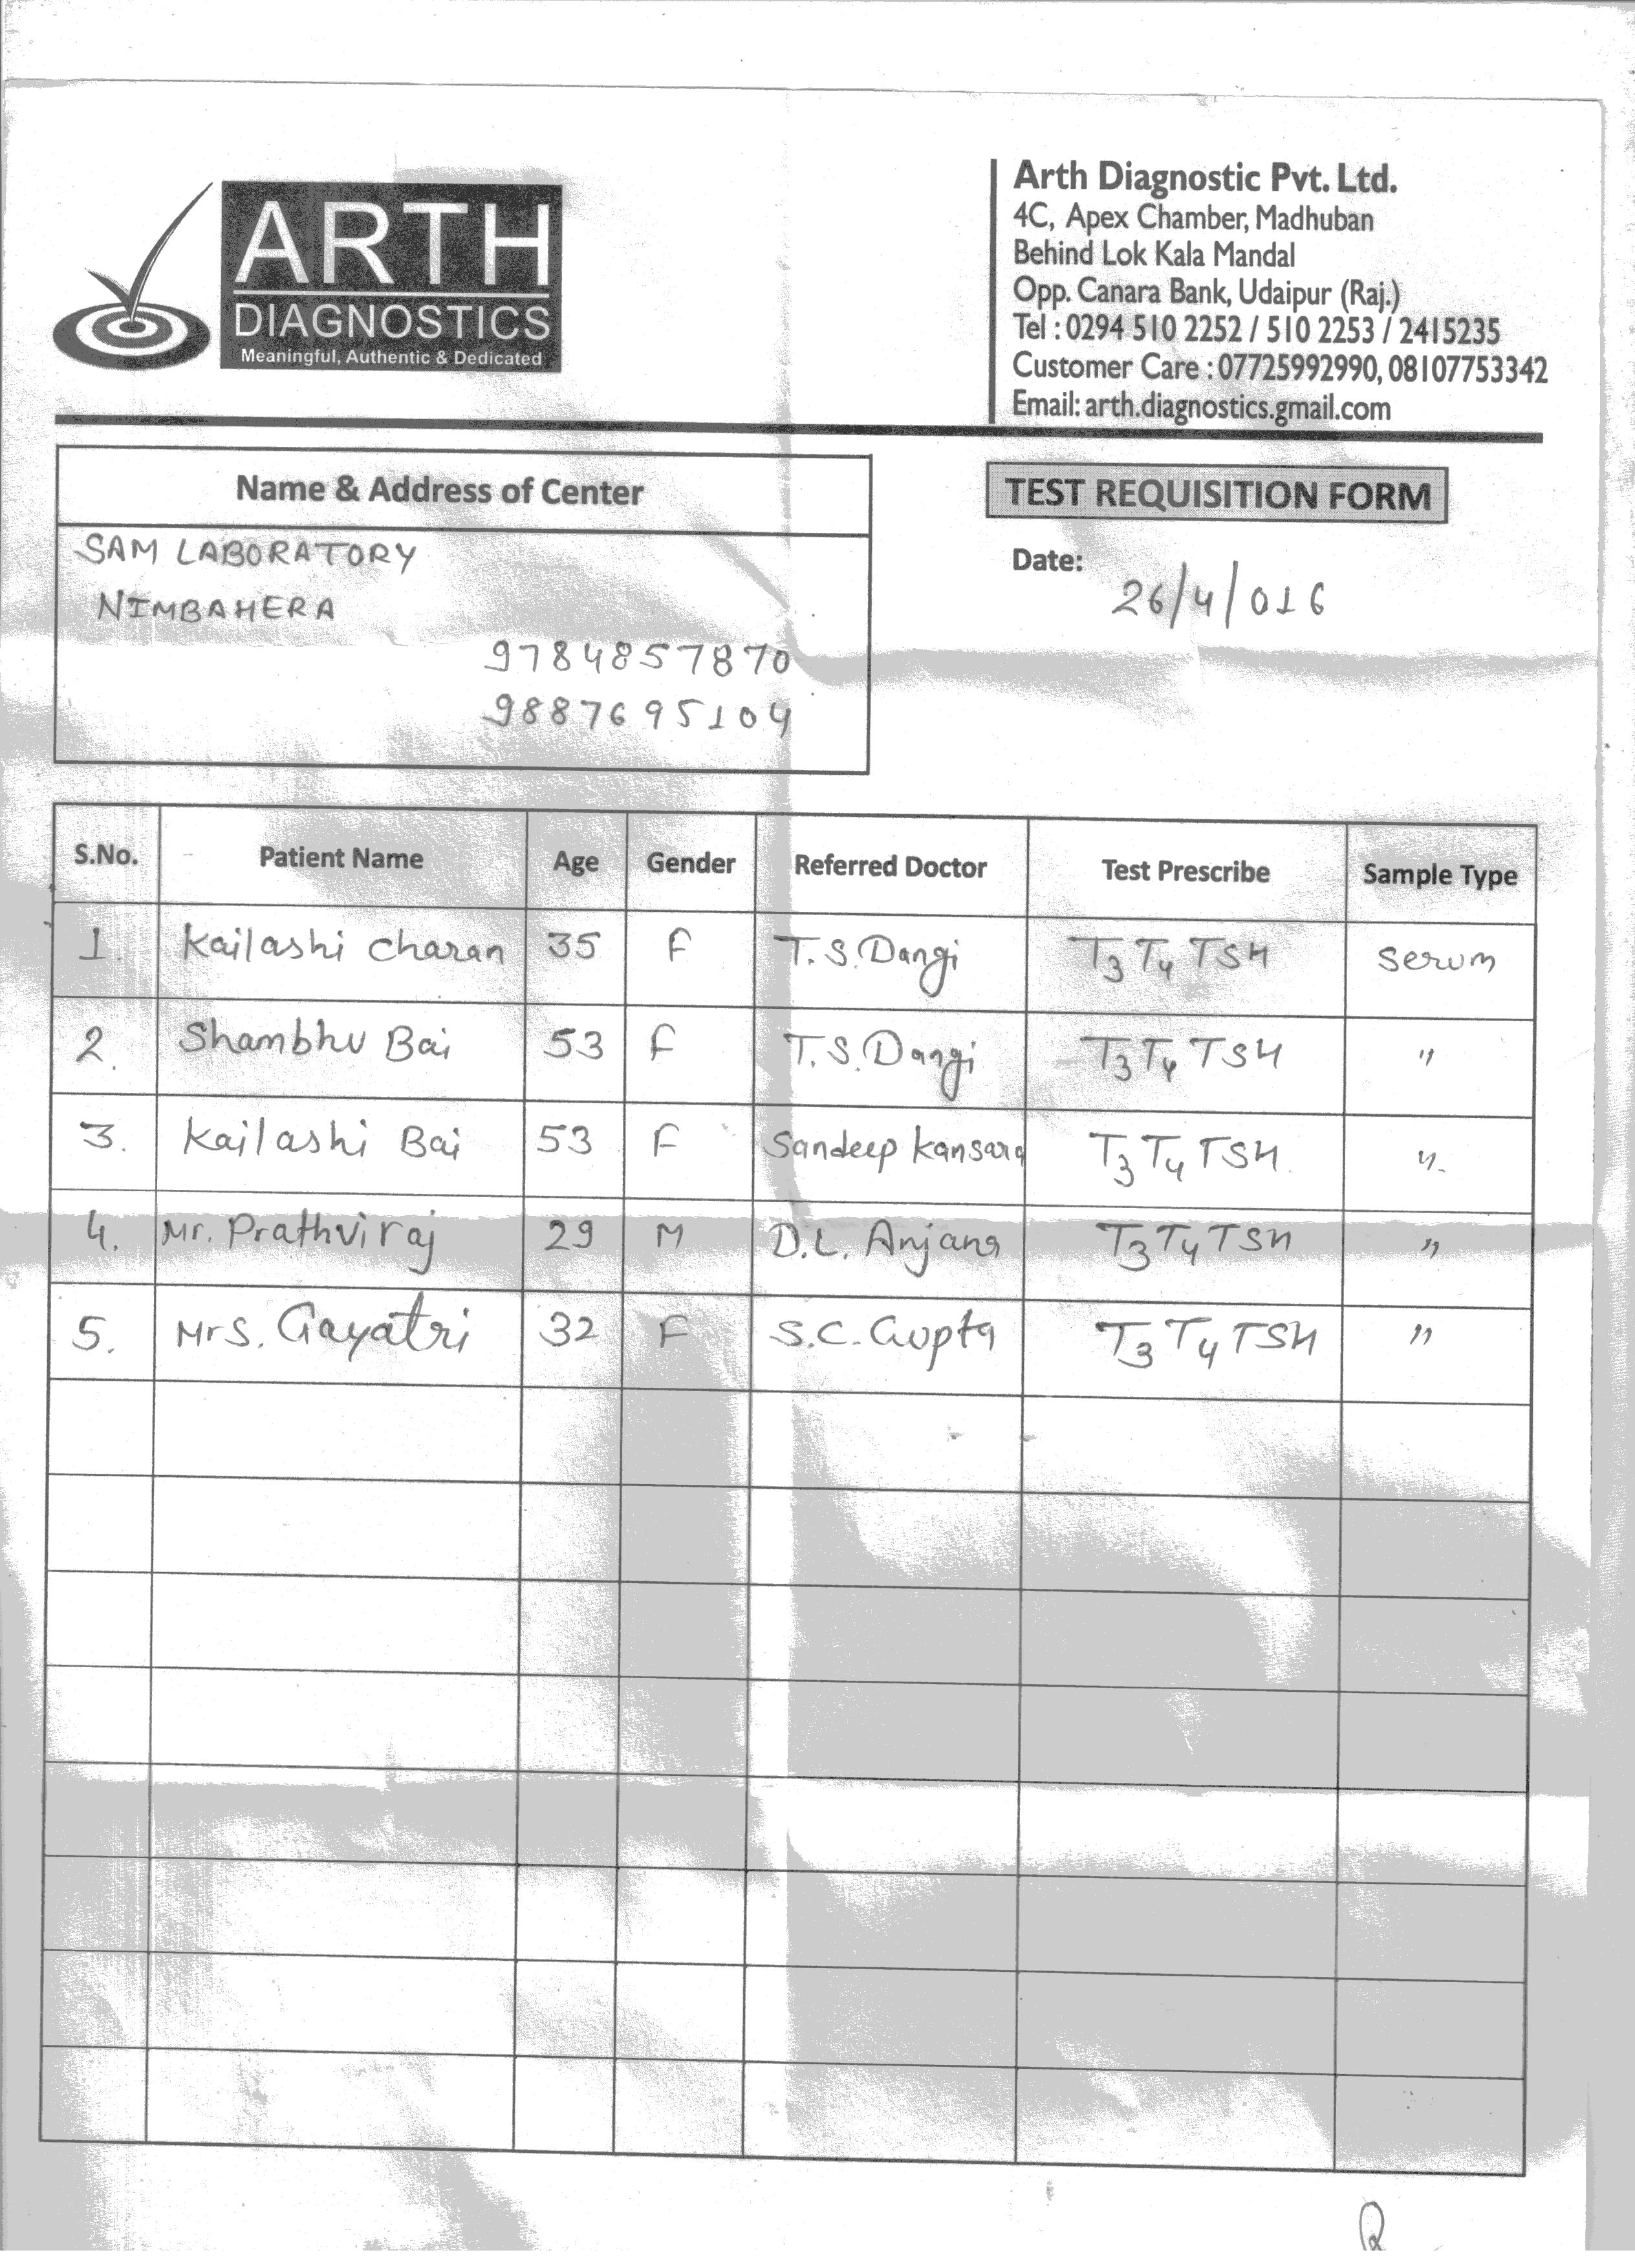 ARTH
DIAGNOSTICS
Meaningful, Authentic & Dedicated
Arth Diagnostic Pvt. Ltd.
4C, Apex Chamber, Madhuban
Behind Lok Kala Mandal
Opp. Canara Bank, Udaipur (Raj.)
Tel : 0294 510 2252 / 510 2253 / 2415235
Customer Care : 07725992990, 08107753342
Email: arth.diagnostics.gmail.com
Name & Address of Center
SAM LABORATORY
NIMBAHERA
9784857870
9887695104
TEST REQUISITION FORM
Date:
26/4/016
S.No. Patient Name Age Gender Referred Doctor Test Prescribe Sample Type
1. Kailashi charan 35 F T.S.Dangi T3 T4 TSH Serum
2. Shambhu Bai 53 F T.S.Dangi T3 T4 TSH "
3. Kailashi Bai 53 F Sandeep Kansara T3 T4 TSH "
4. Mr. Prathviraj 29 M D.L. Anjana T3 T4 TSH "
5. Mrs. Gayatri 32 F S.C. Gupta T3 T4 TSH "